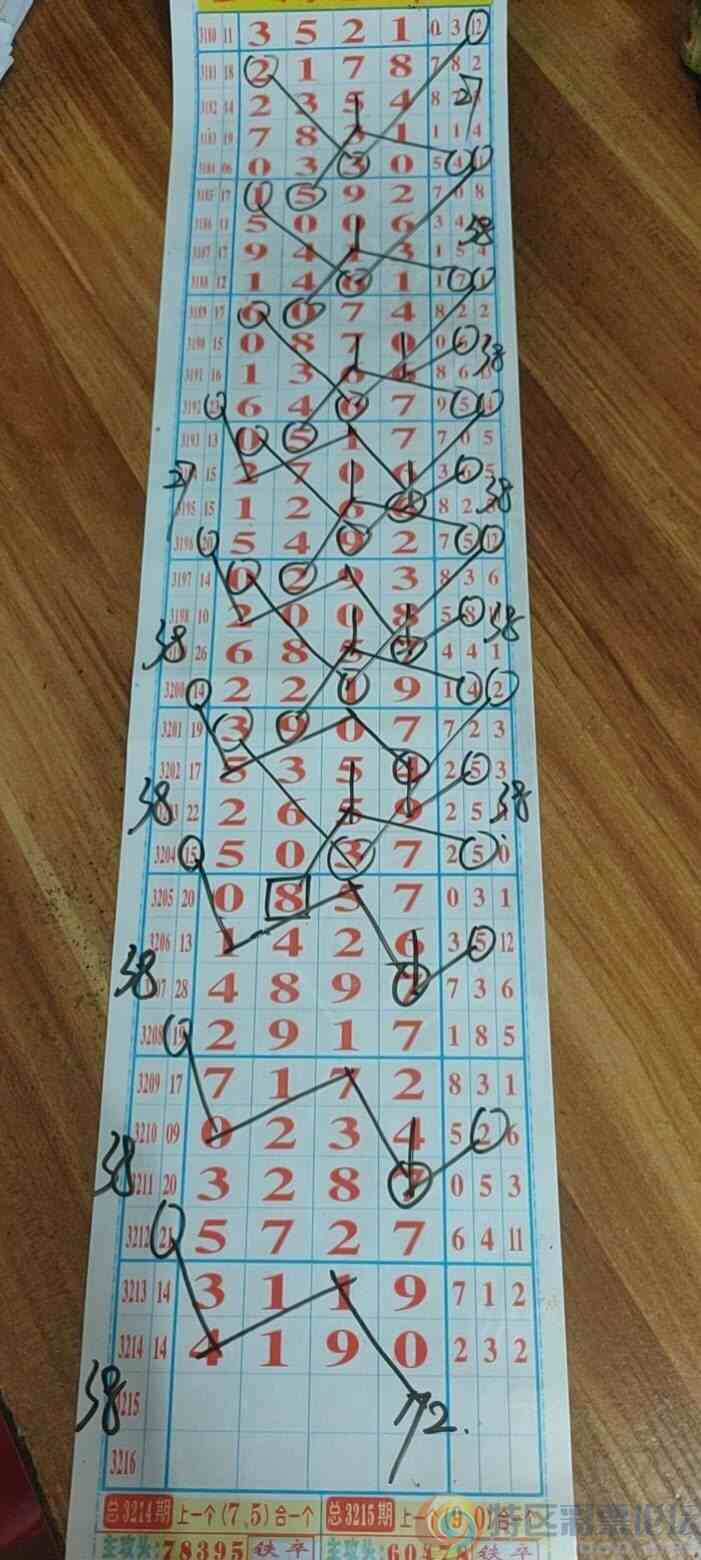 3180 11 3 5 2 1 0 3 12
3181 18 2 1 7 8 7 8 2
3182 14 2 3 5 4 8 27
3183 19 7 8 3 1 1 1 4
3184 06 0 3 3 0 5 4
3185 17 1 5 9 2 7 0 8
3186 11 5 0 0 6 3 4 38
3187 17 9 4 1 3 1 5 4
3188 12 1 4 6 1 1 7
3189 17 6 0 7 4 8 2 2
3190 15 0 8 7 0 0 6 38
3191 16 1 3 6 8 6
3192 23 6 4 6 7 9 5 14
3193 13 0 5 1 7 7 0 5
27 15 2 7 0 6 3 6 5
3195 15 1 2 6 8 2 38
3196 20 5 4 9 2 7 5 12
3197 14 0 2 9 3 8 3 6
3198 10 2 0 0 8 5 8 38
38 26 6 8 5 7 4 4 1
3200 14 2 2 1 9 1 4 2
3201 19 3 9 0 7 7 2 3
3202 17 5 3 5 4 2 5 3
38 22 2 6 5 9 2 5 38
3204 15 5 0 3 7 2 5 0
3205 20 0 8 5 7 0 3 1
3206 13 1 4 2 6 3 5 12
38 07 28 4 8 9 7 7 3 6
3208 19 2 9 1 7 1 8 5
3209 17 7 1 7 2 8 3 1
3210 09 0 2 3 4 5 2 6
38 3211 20 3 2 8 7 0 5 3
3212 21 5 7 2 7 6 4 11
3213 14 3 1 1 9 7 1 2
3214 14 4 1 9 0 2 3 2
38 3215 72.
3216
总3214期 上一个(7、5)合一个 总3215期 上一个(9、0)合一个
主攻头:78395 铁卒 主攻头:60478 铁卒
特区彩票论坛